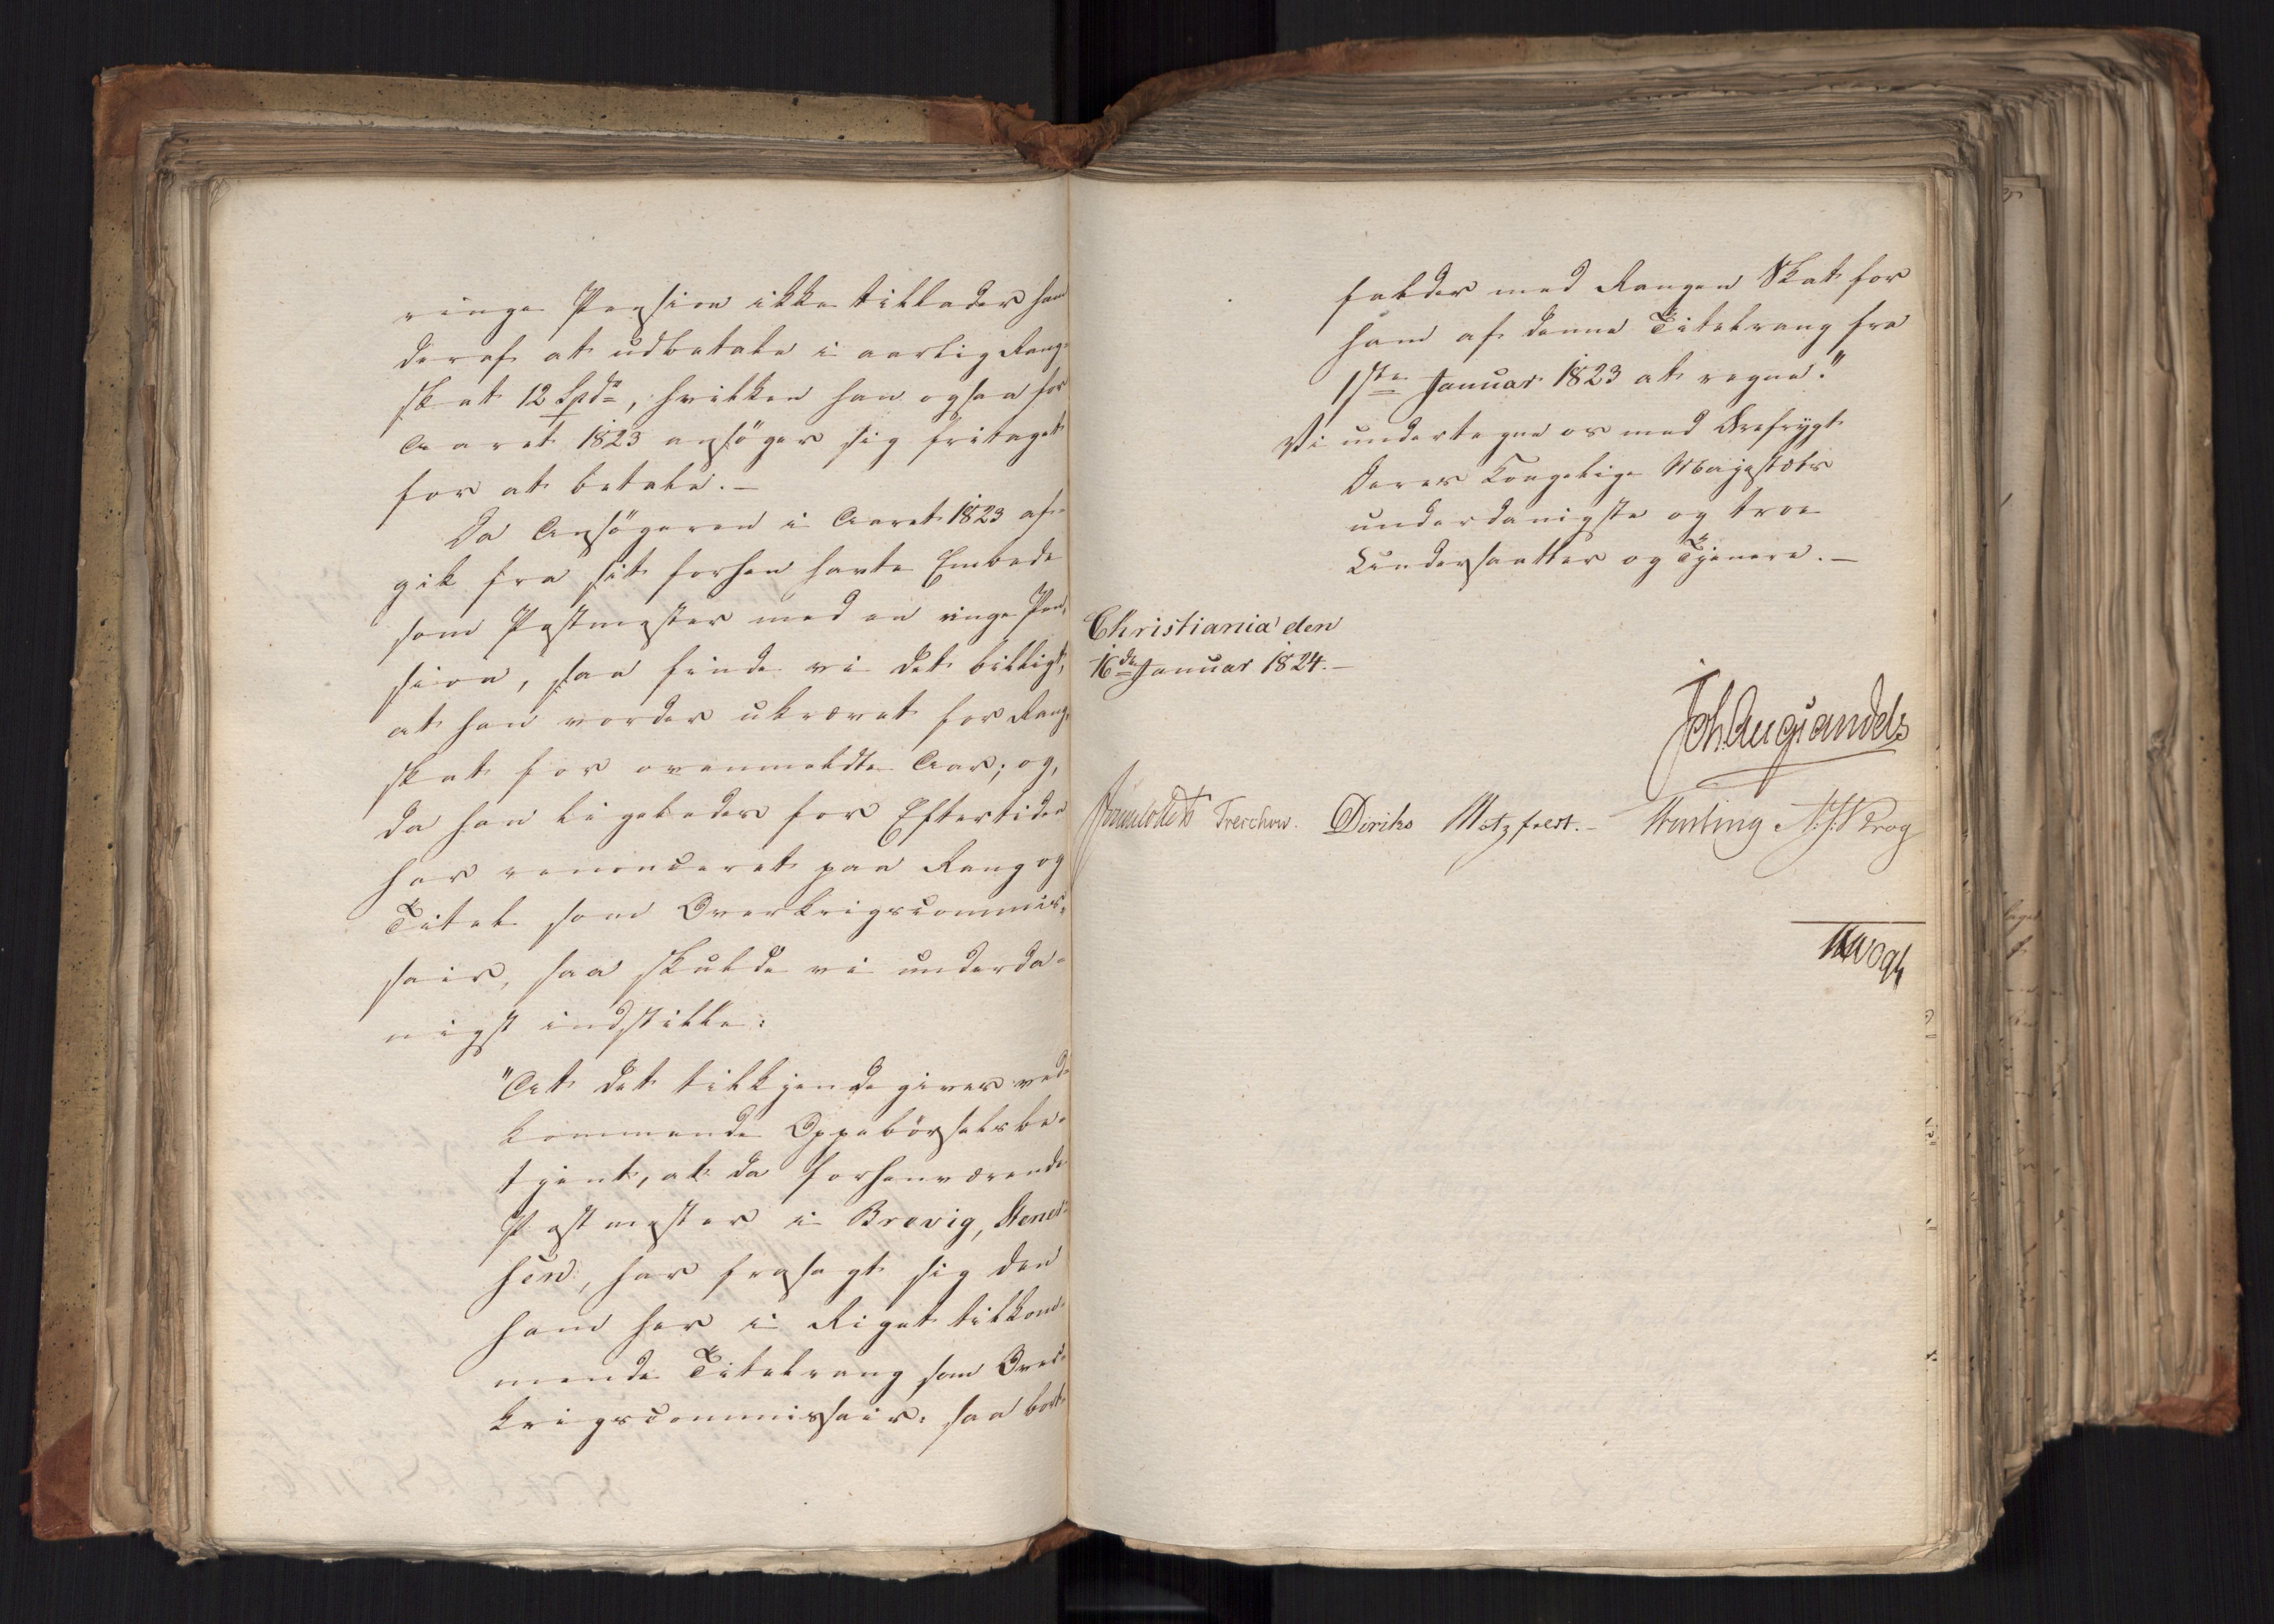 ringe Pension ikke tillader ham
deraf at udbetale i aarlig Rang-
skat 12 Spd., hvilken han ogsaa for
Aaret 1823 ansöger sig fritaget
for at betale.–
Da Ansögeren i Aaret 1823 af-
gik fra sit forhen havte Embede
som Postmester med en ringe Pen-
sion, saa finde vi det billigt,
at han vorder ukrævet for Rang-
skat for ovenmeldte Aar; og,
da han ligeledes for Eftertiden
har renonceret paa Rang og
Titel som Overkrigscommis-
sair, saa skulde vi underda-
nigst indstille:
"At det tilkjendegives ved-
kommende Oppebörselsbe-
tjent, at da forhenværende
Postmester i Brevig, Stener-
sen, har frasagt sig den
ham her i Riget tilkom-
mende Titelrang som Over-
krigscommissair: saa bort-
falder med Rangen Skat for
ham af denne Titelrang fra
1ste Januar 1823 at regne."
Vi undertegne os med Ærefrygt
Deres Kongelige Majestæts
underdanigste og troe
Undersaatter og Tjenere.–
Christiania den
16de Januar 1824.–
Joh. Aug. Sandels
Sommerfeldt Treschow. Diriks Motzfeldt.– Fasting N: J: Krog
Vogt